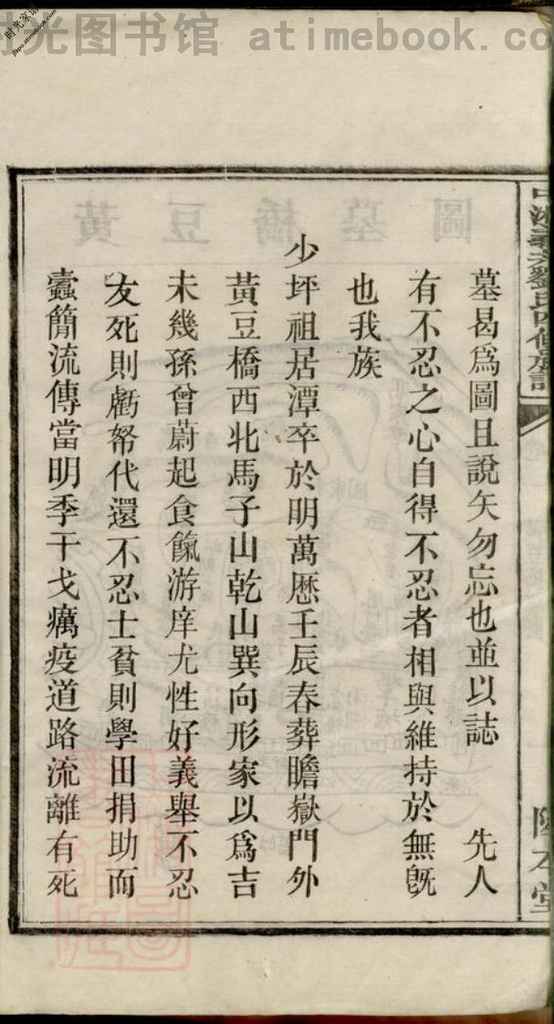 时光图书馆 atimebook.com
墓曷爲圖且說矢勿忘也並以誌　先人
有不忍之心自得不忍者相與維持於無旣
也我族
少坪祖居潭卒於明萬歷壬辰春葬瞻嶽門外
黃豆橋西北馬子山乾山巽向形家以爲吉
未幾孫曾蔚起食餼游庠尤性好義舉不忍
友死則虧帑代還不忍士貧則學田捐助而
蠹簡流傳當明季干戈癘疫道路流離有死
劉氏四修族譜